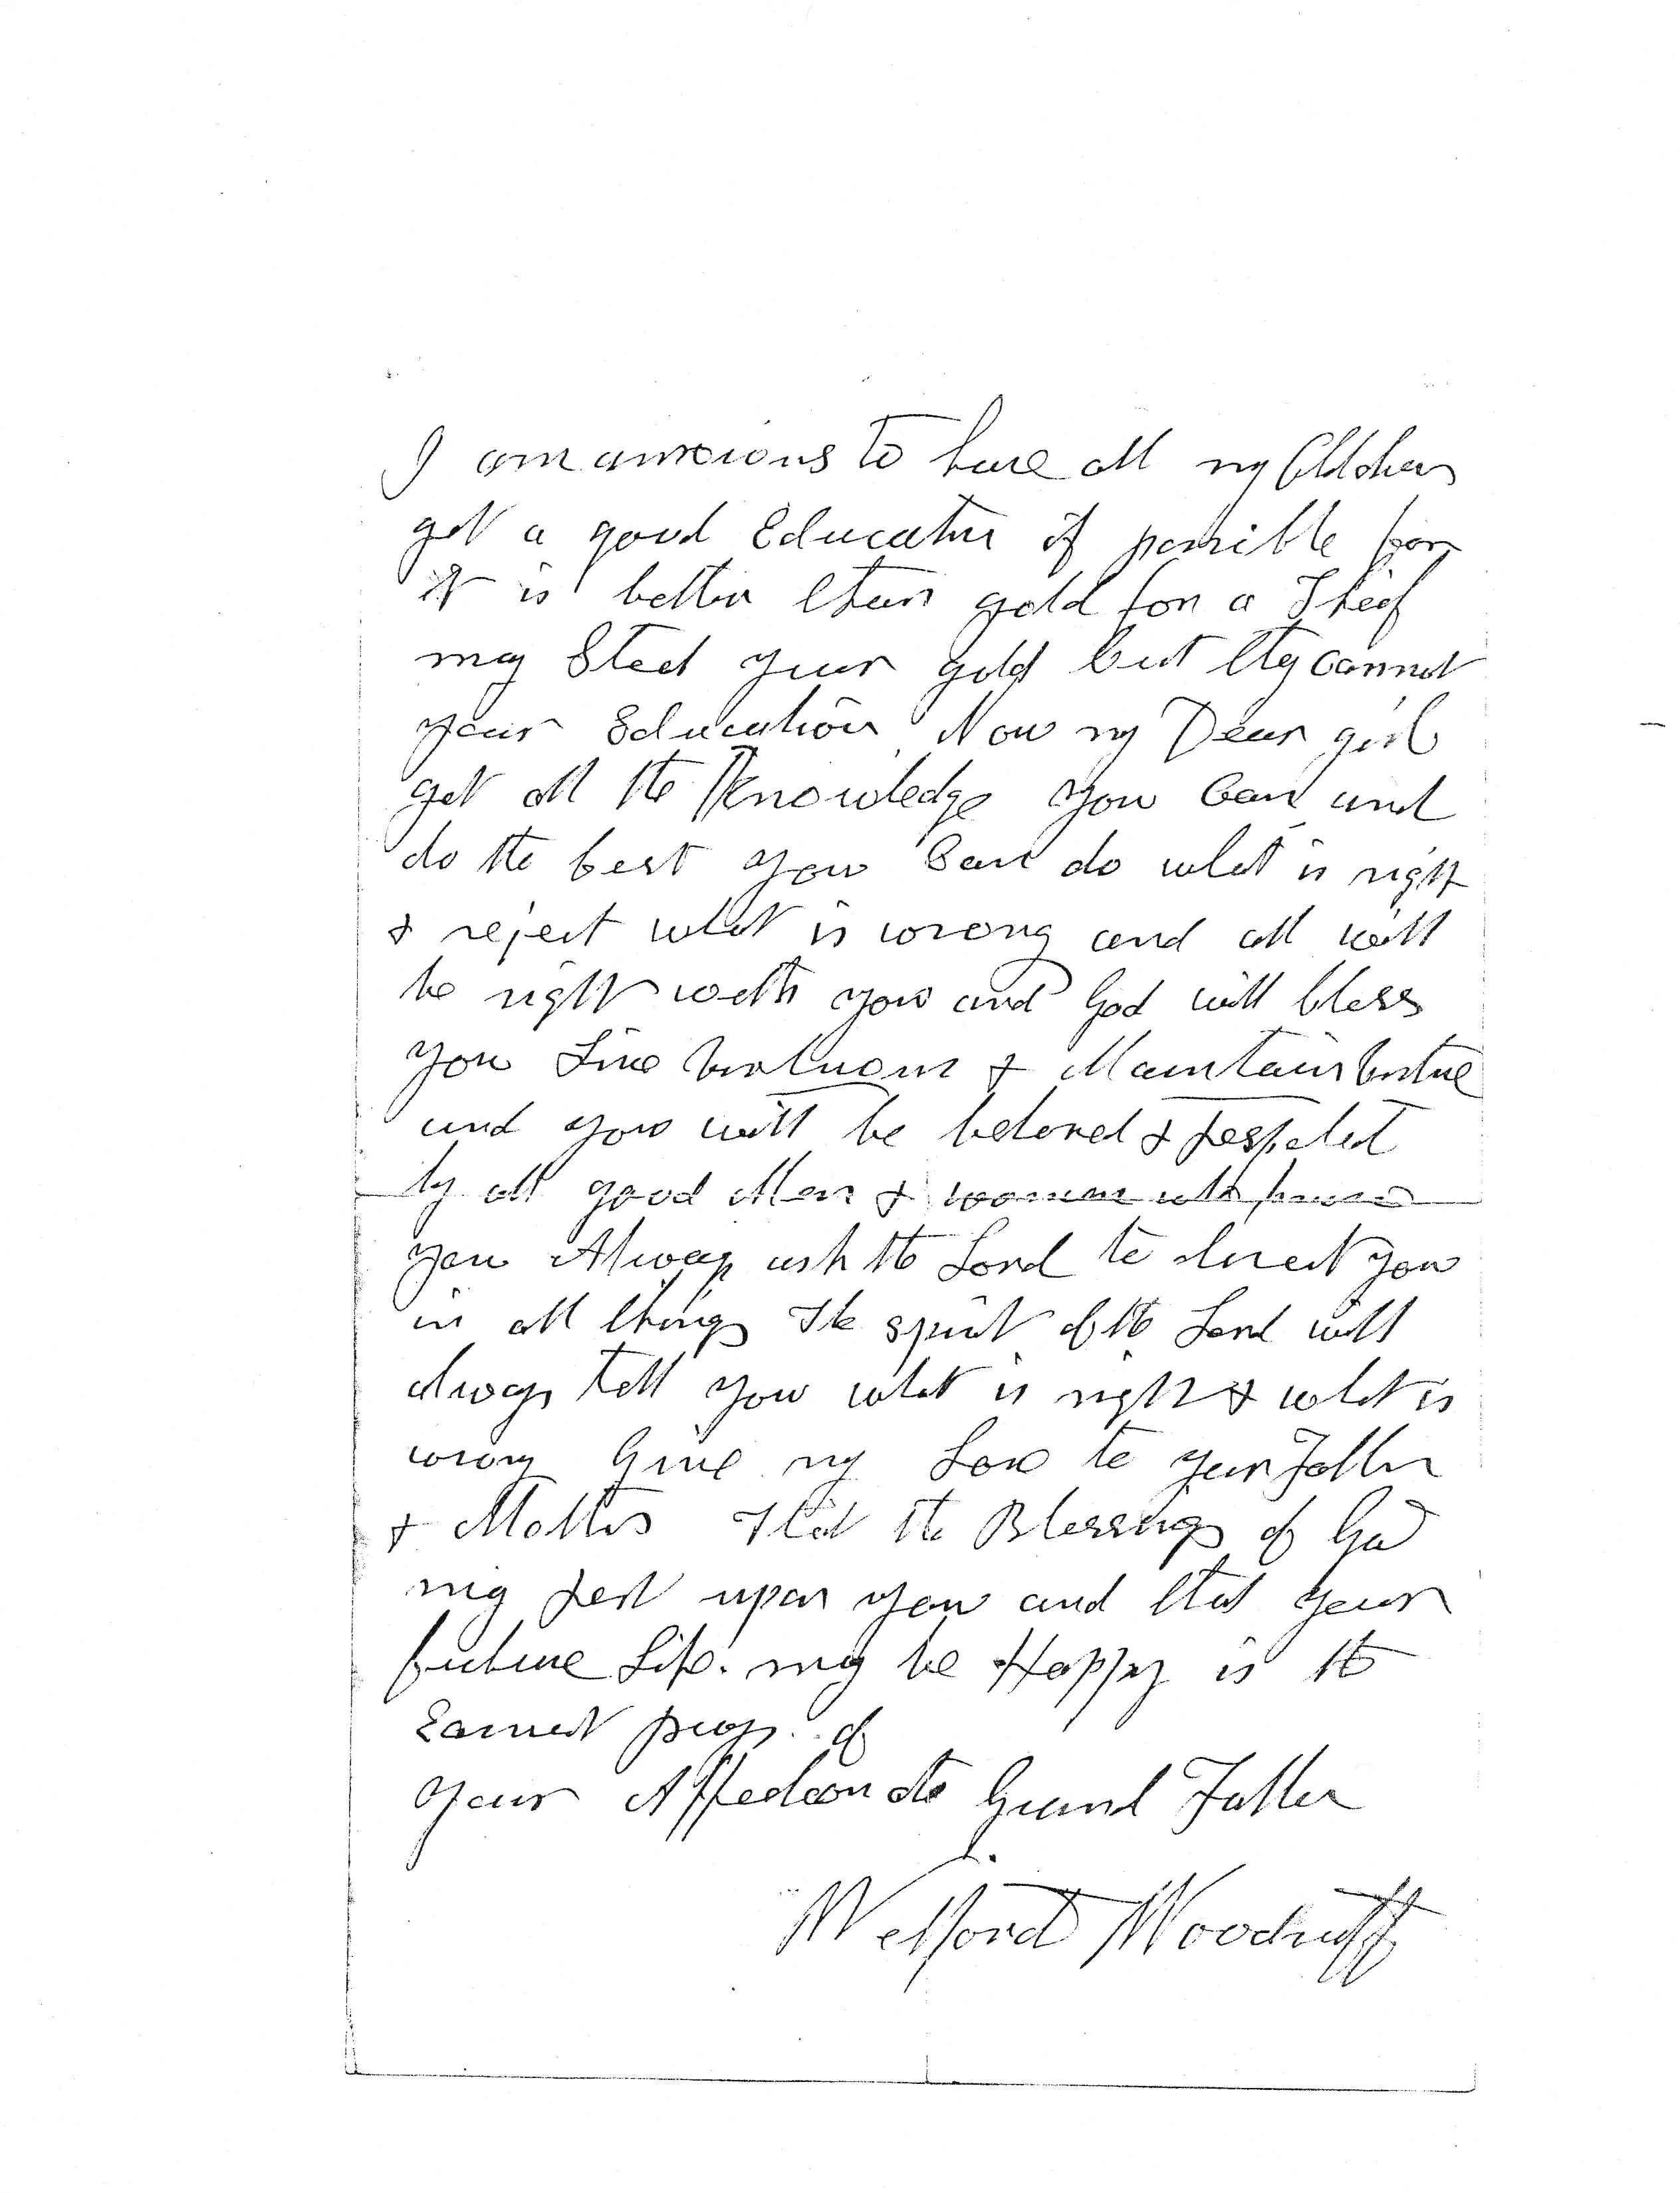 I am anxious to have all my Children
get a good Education if possible for
it is better than gold for a Theef
may Steel your gold but they cannot
your Education Now my Dear girl
get all the Knowledge you Can and
do the best you Can do what is right
& reject what is wrong and all will
be right with you and God will bless
you Live virtuous & Maintain virtue
and you will be beloved & respected
by all good Men & women who know
you Always ask the Lord to direct you
in all things The spirit of the Lord will
always tell you what is right & what is
wrong Give my Love to your Father
& Mother That the Blessings of God
may rest upon you and that your
future Life may be Happy is the
Earnest prayer of
your Affectionate Grand Father
Wilford Woodruff